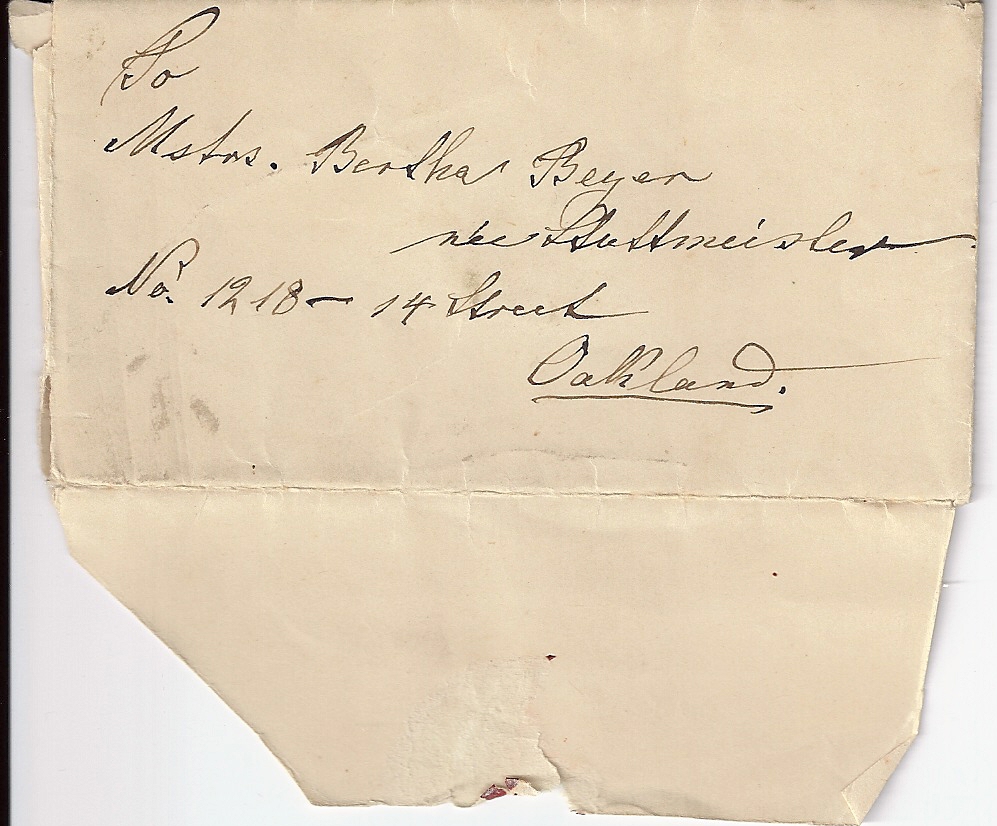 To
Mstrs. Bertha Beyer
née Stuttmeister.
No. 1218 – 14 Street
Oakland.